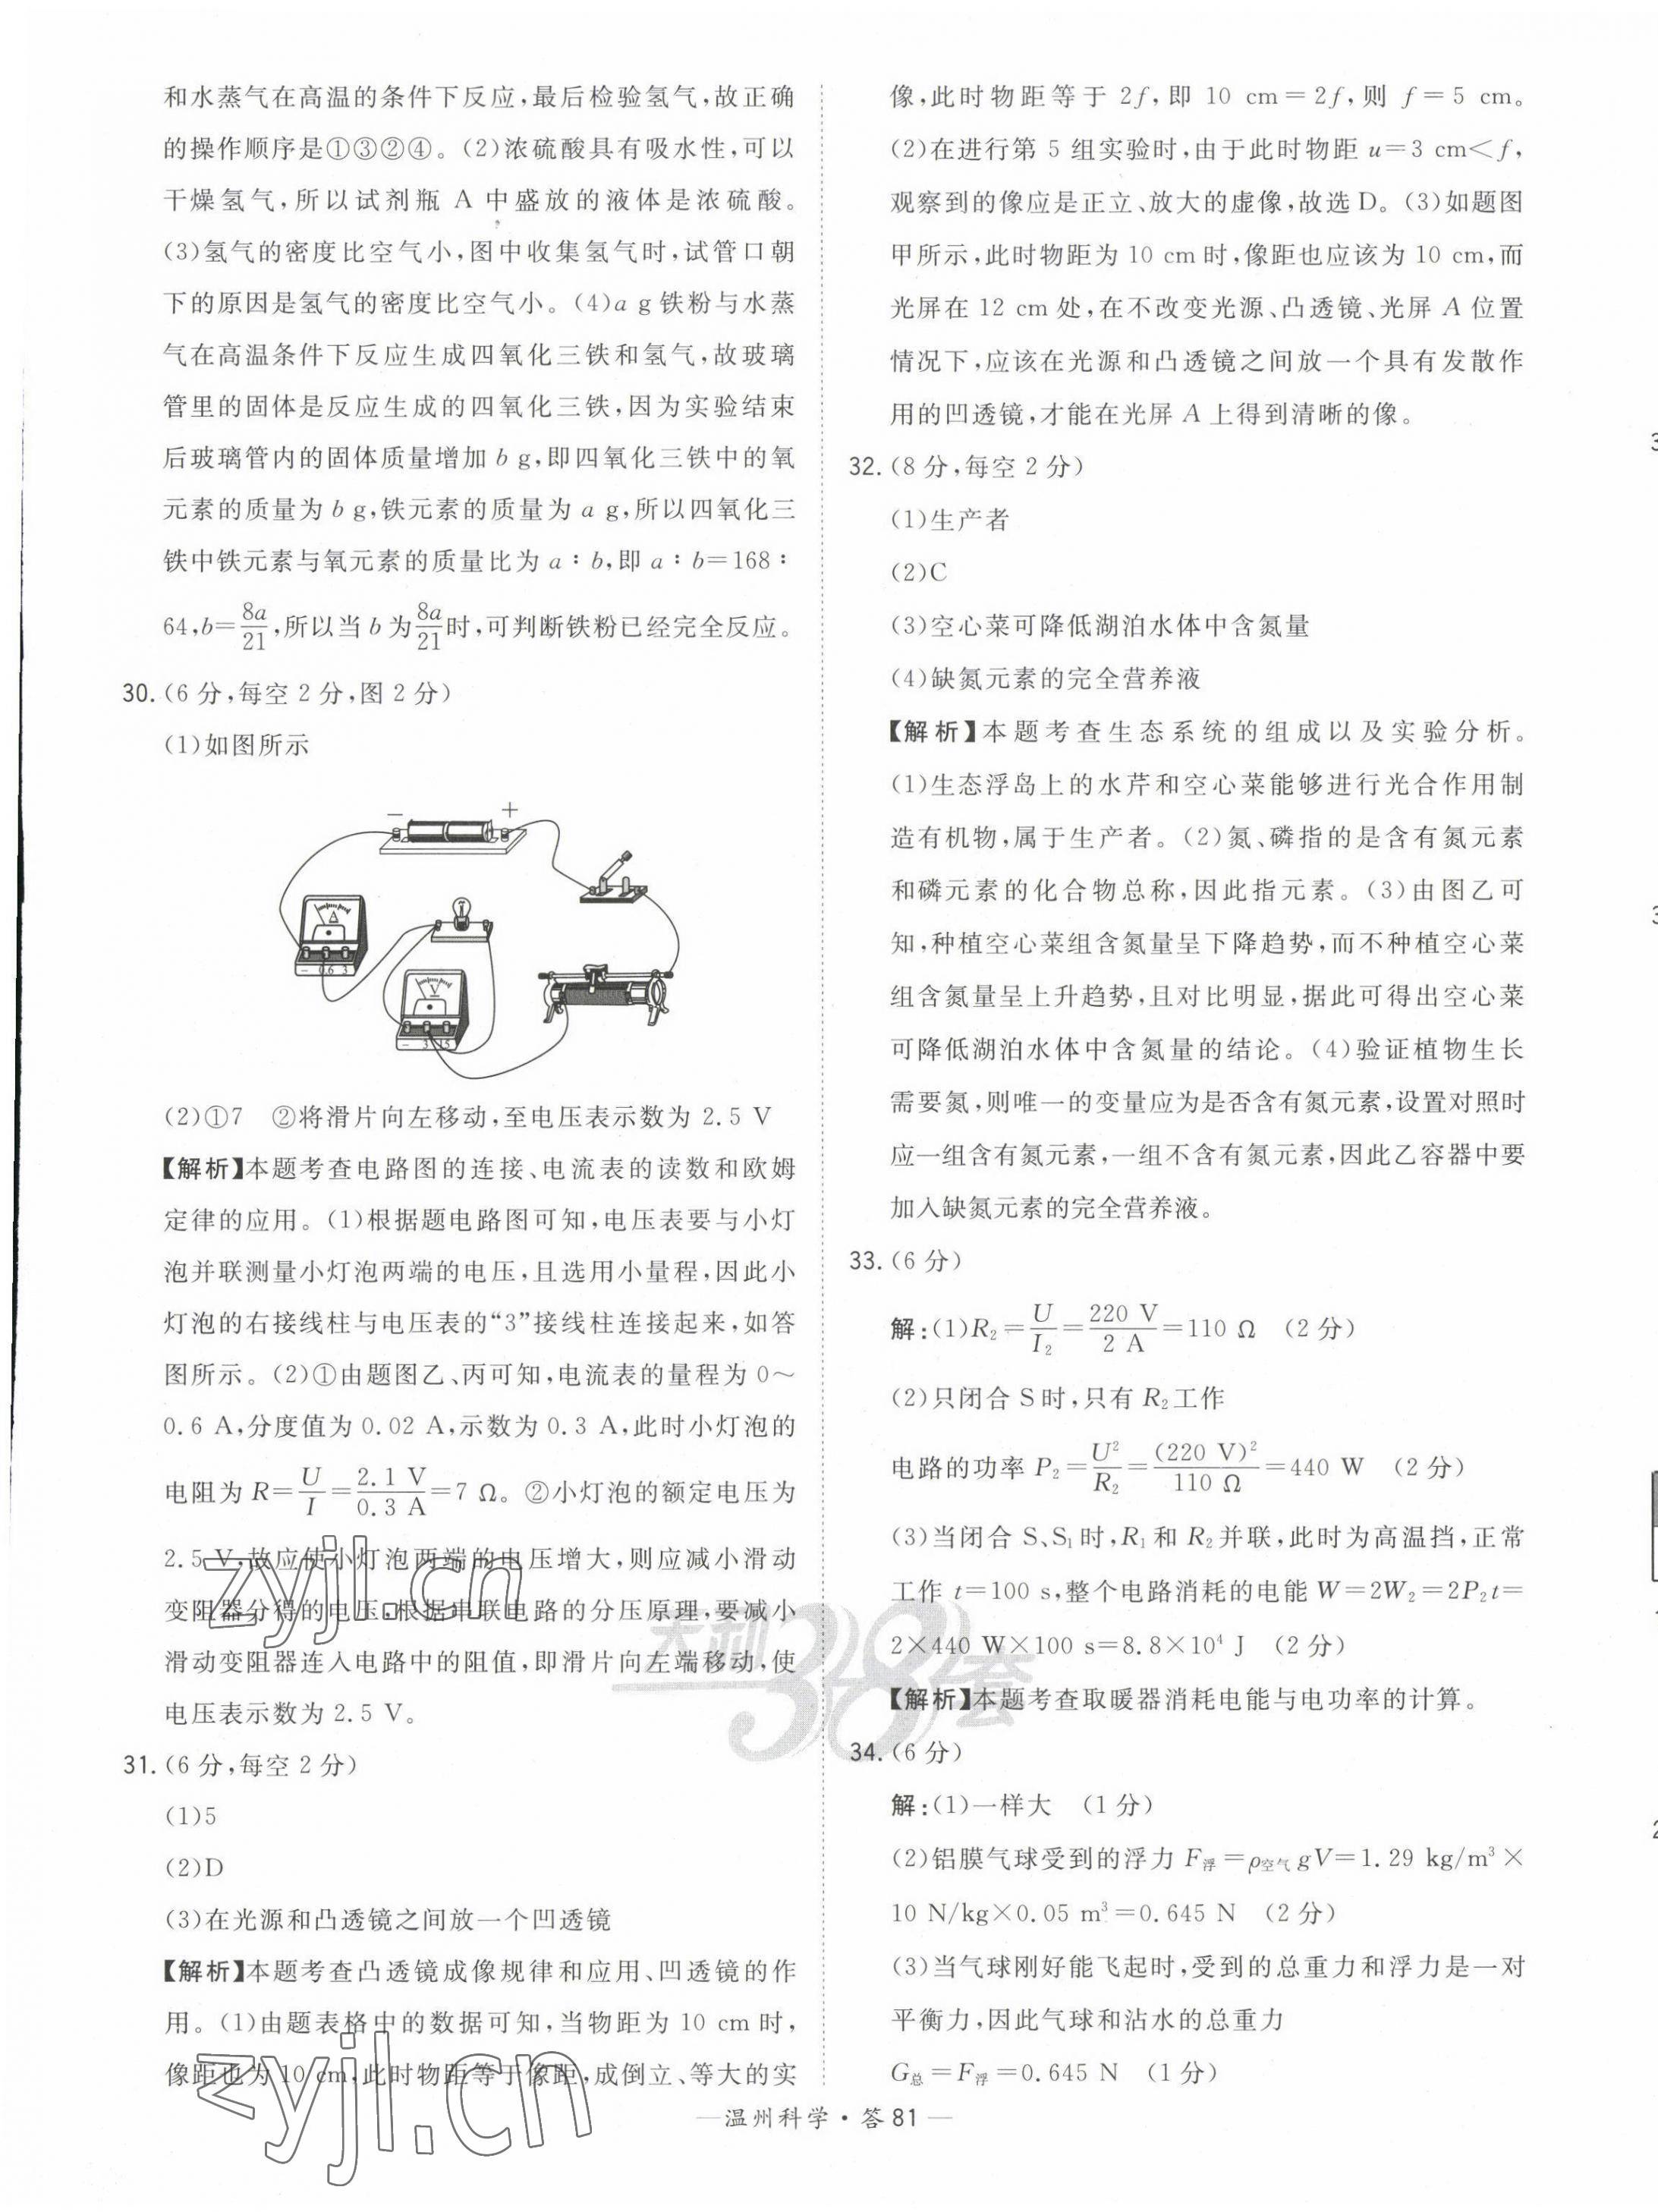 和水蒸气在高温的条件下反应,最后检验氢气,故正确
的操作顺序是①③②④。(2)浓硫酸具有吸水性,可以
干燥氢气,所以试剂瓶 A 中盛放的液体是浓硫酸。
(3)氢气的密度比空气小,图中收集氢气时,试管口朝
下的原因是氢气的密度比空气小。(4)a g铁粉与水蒸
气在高温条件下反应生成四氧化三铁和氢气,故玻璃
管里的固体是反应生成的四氧化三铁,因为实验结束
后玻璃管内的固体质量增加 b g,即四氧化三铁中的氧
元素的质量为 b g,铁元素的质量为 a g,所以四氧化三
铁中铁元素与氧元素的质量比为 a∶b,即 a∶b=168∶
64,b=8a/21,所以当 b 为8a/21时,可判断铁粉已经完全反应。
30.(6分,每空2分,图2分)
(1)如图所示
− +
A
− 0.6 3
V
− 3 15
(2)①7 ②将滑片向左移动,至电压表示数为 2.5 V
【解析】本题考查电路图的连接、电流表的读数和欧姆
定律的应用。(1)根据题电路图可知,电压表要与小灯
泡并联测量小灯泡两端的电压,且选用小量程,因此小
灯泡的右接线柱与电压表的“3”接线柱连接起来,如答
图所示。(2)①由题图乙、丙可知,电流表的量程为 0~
0.6 A,分度值为 0.02 A,示数为 0.3 A,此时小灯泡的
电阻为 R=U/I=2.1 V/0.3 A=7 Ω。②小灯泡的额定电压为
2.5 V,故应使小灯泡两端的电压增大,则应减小滑动
变阻器分得的电压,根据串联电路的分压原理,要减小
滑动变阻器连入电路中的阻值,即滑片向左端移动,使
电压表示数为 2.5 V。
31.(6分,每空2分)
(1)5
(2)D
(3)在光源和凸透镜之间放一个凹透镜
【解析】本题考查凸透镜成像规律和应用、凹透镜的作
用。(1)由题表格中的数据可知,当物距为 10 cm 时,
像距也为 10 cm,此时物距等于像距,成倒立、等大的实
像,此时物距等于 2f,即 10 cm=2f,则 f=5 cm。
(2)在进行第 5 组实验时,由于此时物距 u=3 cm<f,
观察到的像应是正立、放大的虚像,故选 D。(3)如题图
甲所示,此时物距为 10 cm 时,像距也应该为 10 cm,而
光屏在 12 cm 处,在不改变光源、凸透镜、光屏 A 位置
情况下,应该在光源和凸透镜之间放一个具有发散作
用的凹透镜,才能在光屏 A 上得到清晰的像。
32.(8分,每空2分)
(1)生产者
(2)C
(3)空心菜可降低湖泊水体中含氮量
(4)缺氮元素的完全营养液
【解析】本题考查生态系统的组成以及实验分析。
(1)生态浮岛上的水芹和空心菜能够进行光合作用制
造有机物,属于生产者。(2)氮、磷指的是含有氮元素
和磷元素的化合物总称,因此指元素。(3)由图乙可
知,种植空心菜组含氮量呈下降趋势,而不种植空心菜
组含氮量呈上升趋势,且对比明显,据此可得出空心菜
可降低湖泊水体中含氮量的结论。(4)验证植物生长
需要氮,则唯一的变量应为是否含有氮元素,设置对照时
应一组含有氮元素,一组不含有氮元素,因此乙容器中要
加入缺氮元素的完全营养液。
33.(6分)
解:(1)R₂=U/I₂=220 V/2 A=110 Ω (2分)
(2)只闭合 S 时,只有 R₂工作
电路的功率 P₂=U²/R₂=(220 V)²/110 Ω=440 W (2分)
(3)当闭合 S、S₁时,R₁和 R₂并联,此时为高温挡,正常
工作 t=100 s,整个电路消耗的电能 W=2W₂=2P₂t=
2×440 W×100 s=8.8×10⁴ J (2分)
【解析】本题考查取暖器消耗电能与电功率的计算。
34.(6分)
解:(1)一样大 (1分)
(2)铝膜气球受到的浮力 F浮=ρ空气gV=1.29 kg/m³×
10 N/kg×0.05 m³=0.645 N (2分)
(3)当气球刚好能飞起时,受到的总重力和浮力是一对
平衡力,因此气球和沾水的总重力
G总=F浮=0.645 N (1分)
天利38套
zyjl.cn
zyjl.cn
—温州科学·答81—